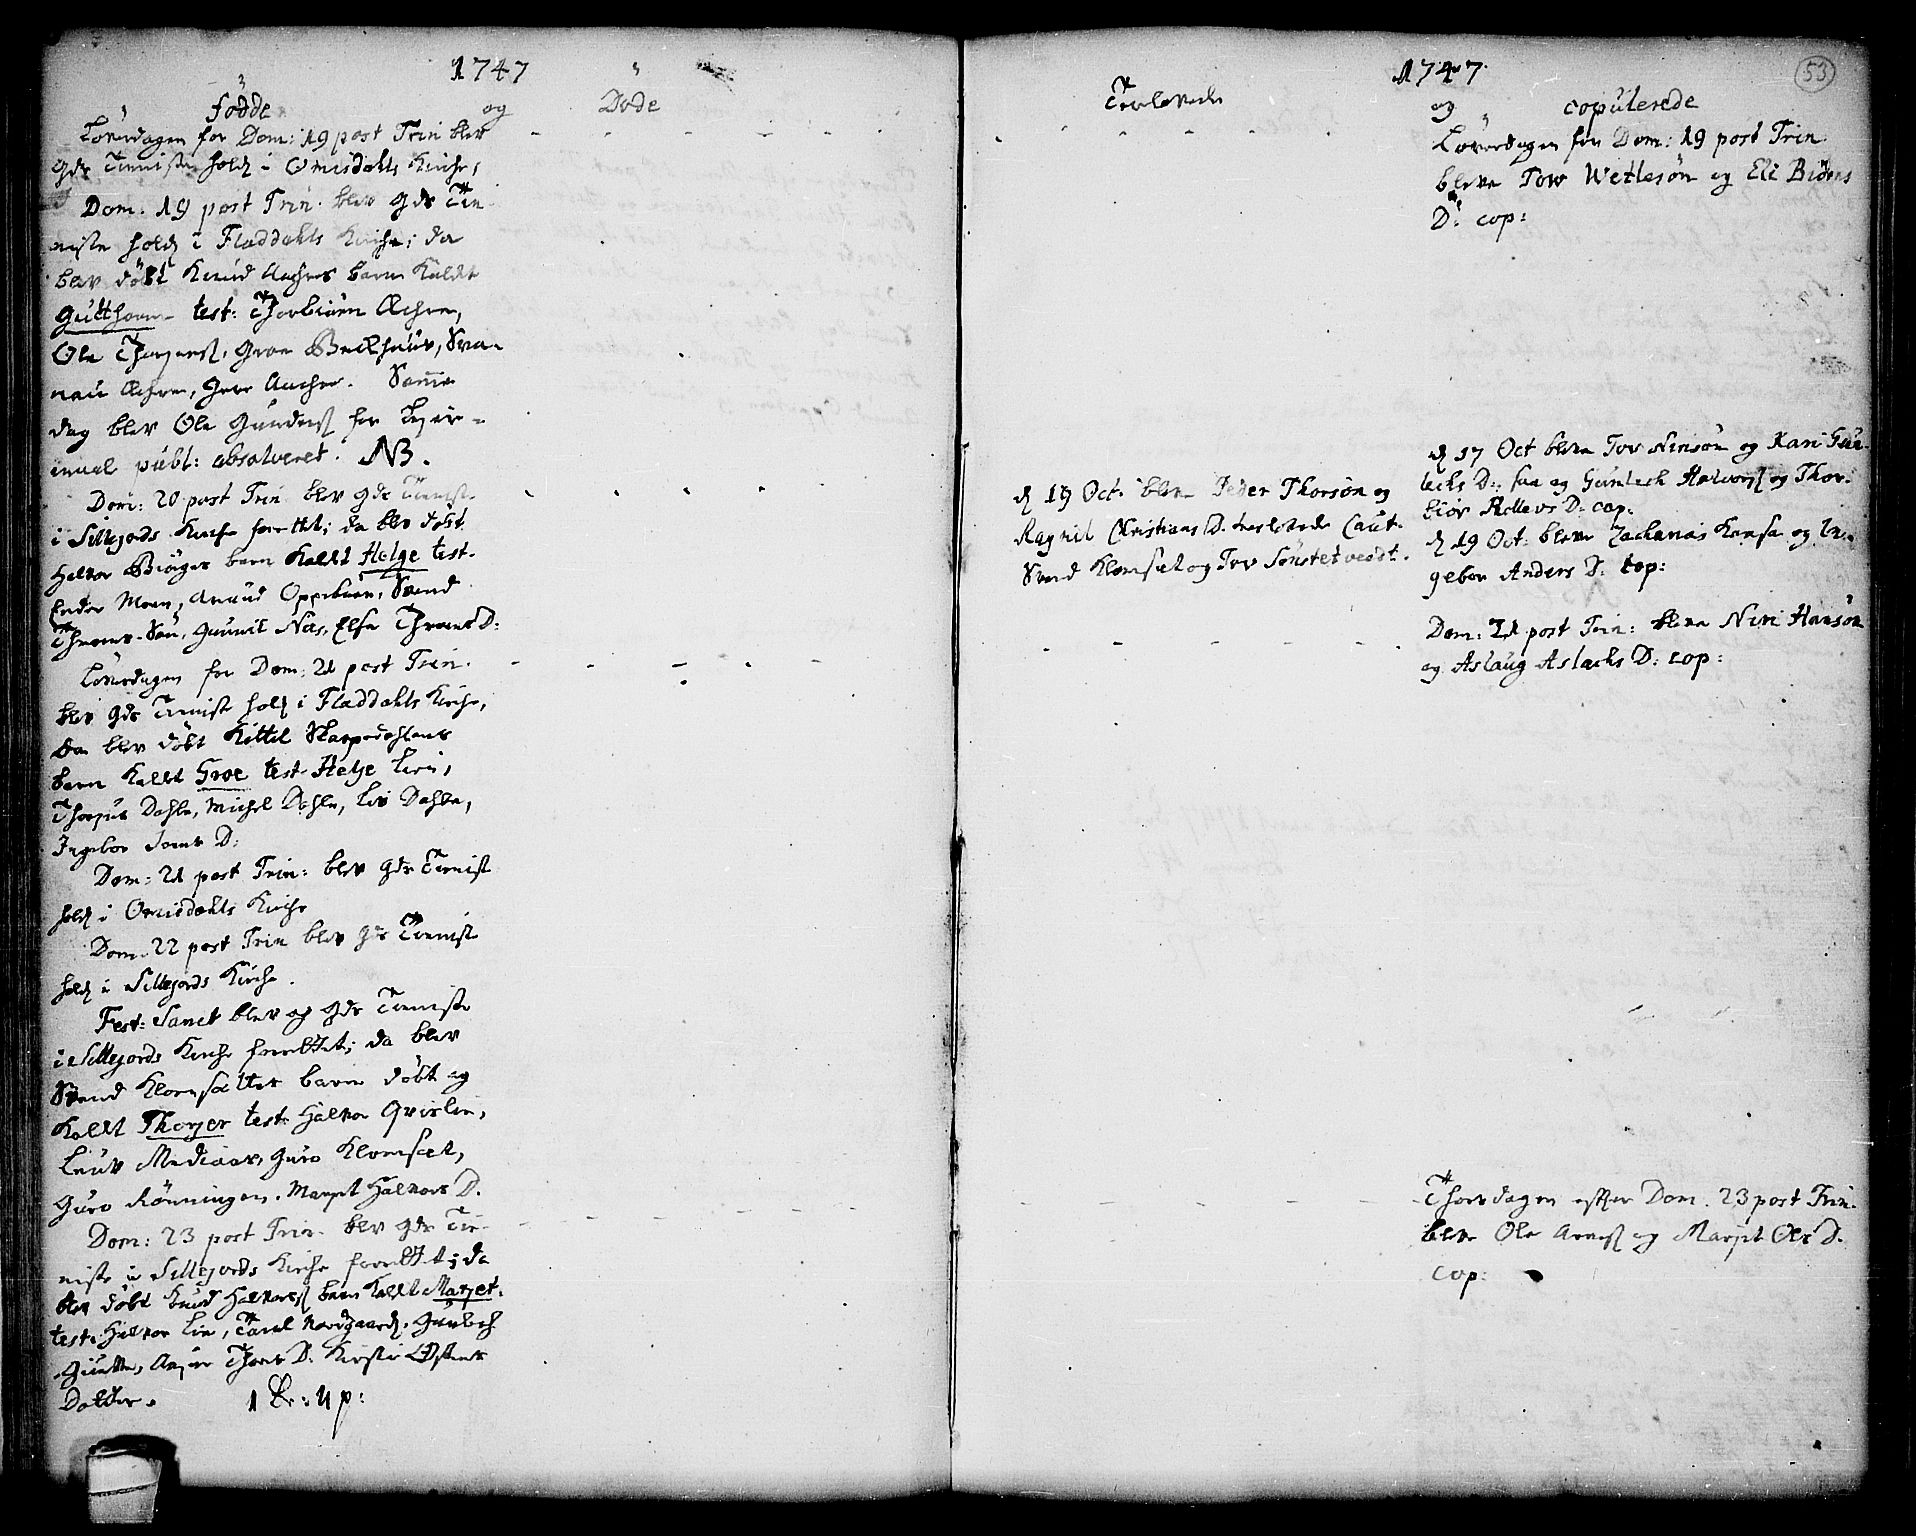 1747
Fødde og Døde
Løverdagen for Dom: 19 post Trin blev
Gds Tienisten hold i Omisdahls Kirche,
Dom: 19 post Trin. blev Gds Tie-
niste hold i Fladdahls Kirche; da
blev døbt Knud Aachres barn Kaldt
Gutthorm test: Thorbiørn Æchre,
Ole Thorjens, Groe Beckhuus, Sva-
nau Æchre, Groe Aachre. Samme
dag blev Ole Gunders for Lejer-
maal publ: absolveret. NB.
Dom: 20 post Trin blev Gds Tienist
i Sillejords Kirche forettet; da blev døbt
Halvor Biøges barn Kaldt Helge test.
Peder Moen, Amund Oppebøen, Svend
Throns-Søn, Gunnil Næs, Else Throns D:
Løverdagen for Dom: 21 post Trin.
blev Gds Tienist hold i Fladdahls Kirche,
Da blev døbt Kittil Skarpedahlens
barn Kaldt Groe test. Helje Lien,
Thorjus Dahle, Michel Dahle, Liv Dahle,
Ingebor Joens D:
Dom: 21 post Trin: blev Gds Tienist
hold i Omisdahls Kirche
Dom: 22 post Trin blev Gds Tienist
hold i Sillejords Kirche.
Fest: Sanct blev og Gds Tieniste
i Sillejords Kirche forettet; da blev
Svend Klomsætter barn døbt og
Kaldt Thorjer test: Halvor Qvislie,
Leuv Mediaas, Guro Klomset,
Guro Rønningen, Marjit Halvors D.
Dom: 23 post Trin. blev Gds Tie-
niste i Sillejords Kirche forettet; da
blev døbt Knud Halvors barn Kaldt Marjet.
test. Halvor Lie, Tarel Nordgaard, Gunlech
Giutte, Anjer Thors D. Kirsti Østens
Datter. 1 Br: Up:
1747. 53
Trolovede og copulerede
Løverdagen for Dom: 19 post Trin
bleve Tow Wetlesøn og Eli Biørns
D: cop:
d 17 Oct bleve Tov Nirisøn og Kari Gun-
lechs D:, saa og Gunlech Halvors og Thor-
biør Rellevs D: cop:
d 19 Oct. bleve Peder Thorsøn og
Ragnil Christians D. trolovede Caut.
Svend Klomset og Tov Sønstetvedt.
d 19 Oct: bleve Zacharias Hansen og In-
gebor Anders D: cop:
Dom: 21 post Trin: bleve Niri Hansøn
og Aslaug Aslachs D: cop:
Thorsdagen efter Dom. 23 post Trin.
bleve Ole Arnes og Marjit Oles D.
cop: